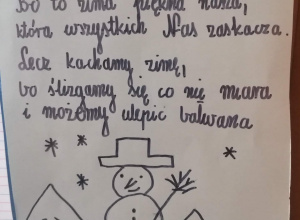 Bo to zima piękna nasza,
która wszystkich Nas zaskacza.
Lecz kochamy zimę,
bo ślizgamy się co nie miara
i możemy ulepić bałwana